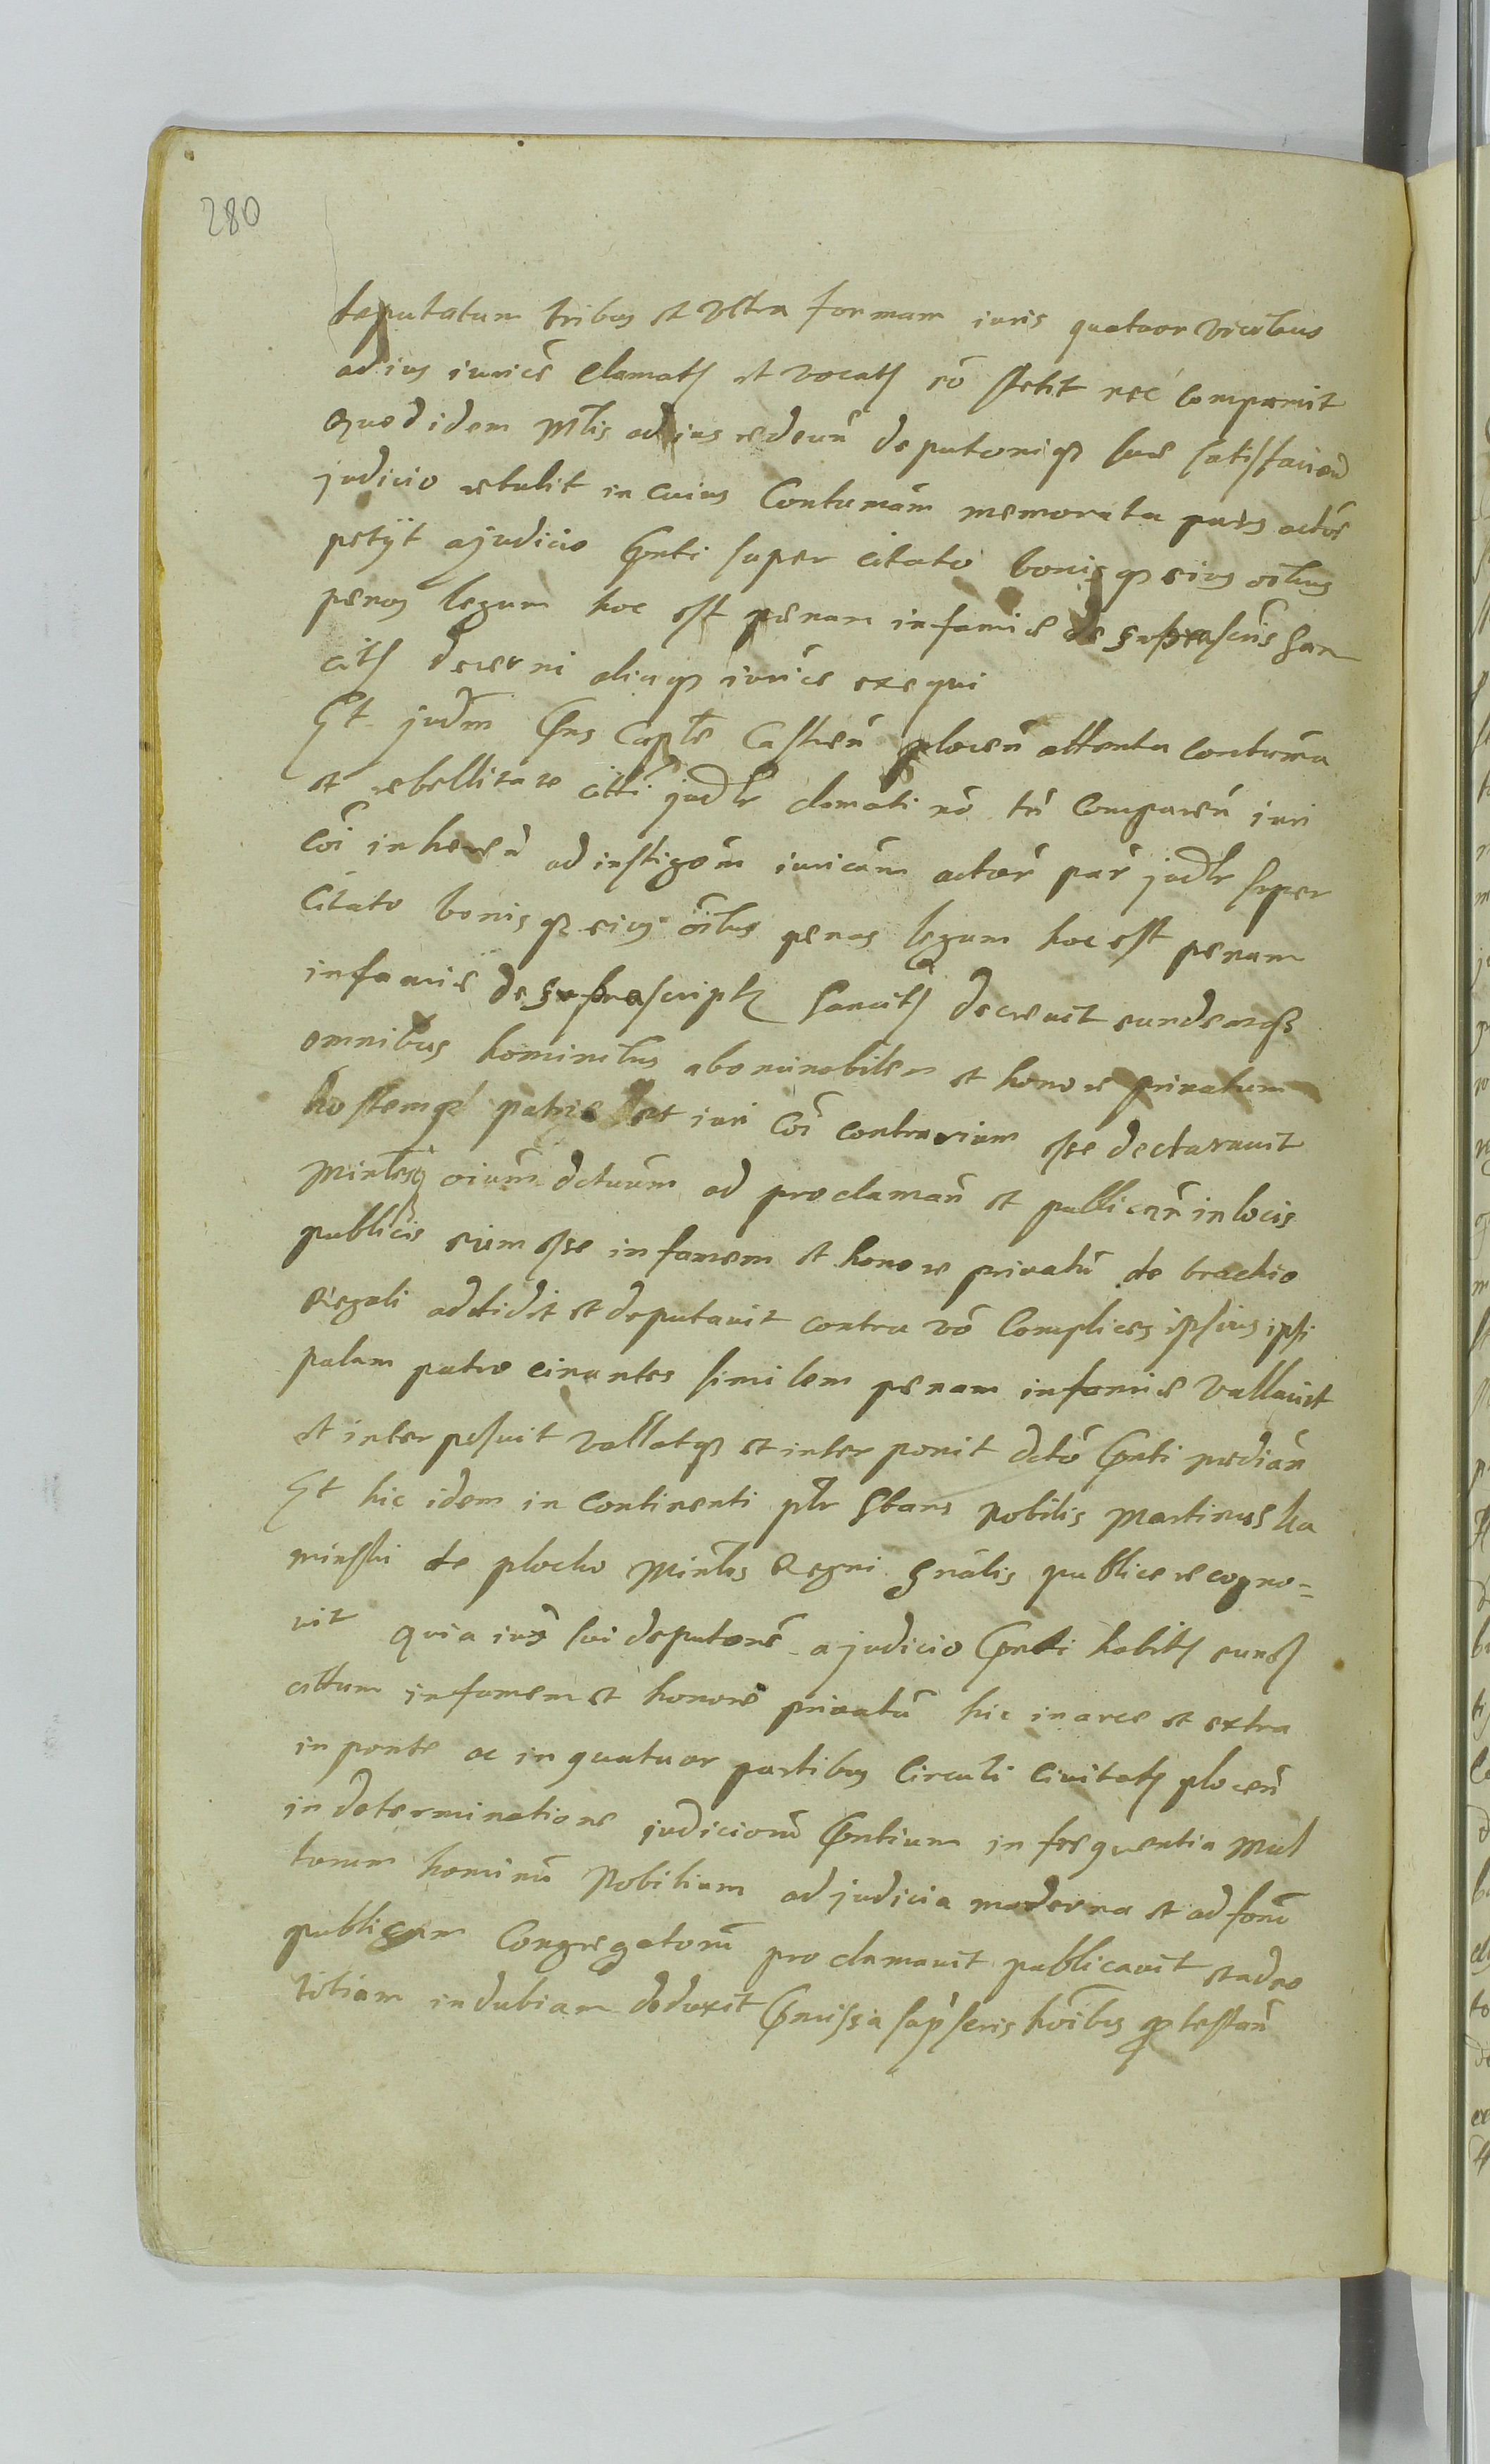 280
deputatum tribus et ultra formam iuris quatuor vicibus
ad ius iurice clamats et vocats nō stetit nec comparuit
Quod idem Mtlis ad ius redeun̄ deputoniq̄ sue satisfacien̄
judicio retulit in cuius Contumām memorata pars actōr
petijt a judicio p̄nti super citato bonisq̄ eius oībus
penas legum hoc est penam infamie de suprascris san
citis decerni aliaq̄ iurice exequi
Et judm̄ p̄ns Capt̄le Castren̄ plocen̄ attenta contumā
et rebellitate citti judlr clamati nō tn̄ comparen̄ iuri
cōi inheren̄ ad instigōm iuricām actōr pār judlr super
Citato bonisq̄ eius oībus penas legum hoc est penam
infamie de suprascripts sancits decrevit eundemq̄
omnibus hominibus abominabilem et honore privatum
hostemq̄ patrie et iuri cōi contrarium esse declaravit
Minlesq̄ oium̄ dctuūm ad proclaman̄ et publican̄ in locis
publicis eum esse infamem et honore privatū de brachio
Regali addidit et deputavit contra vō Complices ipsius ipsi
palam patrocinantes similem penam infamie vallavit
et interposuit vallatq̄ et interponit dctō p̄nti mediān
Et hic idem in continenti plr stans Nobilis Martinus ka
minski de plocko Minles Regni gnālis publice recogno=
vit quia iuxˢ sui deputonē a judicio p̄nti habits eunds
cittum infamem et honore privatū hic in arce et extra
in ponte ac in quatuor partibus Circuli Civitats plocen̄
in determinatione judiciorū p̄ntium in frequentia Mul
torum hominū Nobilium ad judicia moderna et ad forū
publicum Congregatorū proclamavit publicavit et ad no
titiam indubiam deduxit p̄missa sap̄ seris hoībus p̄testān